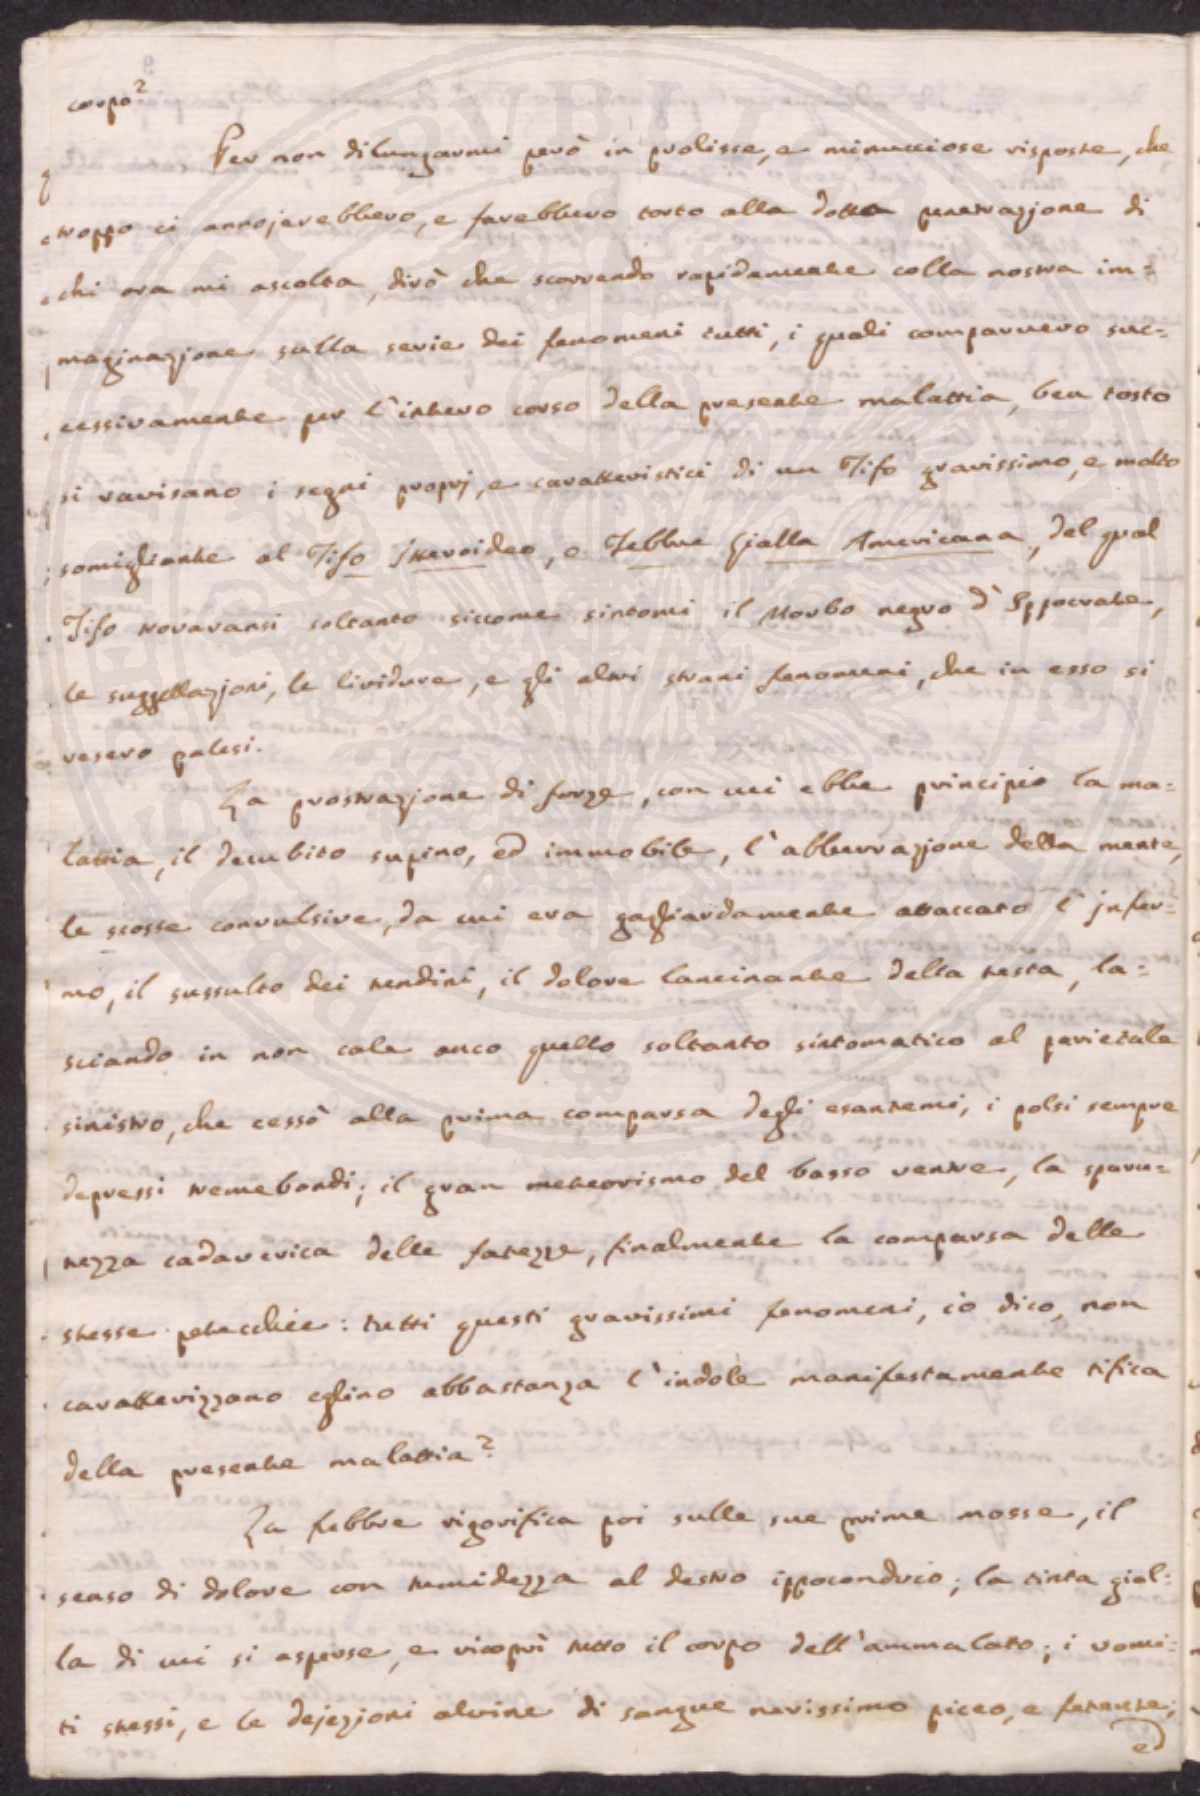 corpo?
Per non dilungarmi però in prolisse, e minucciose risposte, che
troppo ci annojerebbero, e farebbero torto alla dotta penetrazione di
chi ora mi ascolta, dirò che scorrendo rapidamente colla nostra im=
maginazione sulla serie dei fenomeni tutti, i quali comparvero suc=
cessivamente per l'intero corso della presente malattia, ben tosto
si ravisano i segni proprj, e caratteristici di un Tifo gravissimo, e molto
somigliante al Tifo Itteroideo, o Febbre Gialla Americana, del qual
Tifo trovaransi soltanto siccome sintomi il Morbo negro d'Ippocrate,
le suggellazioni, le lividure, e gli altri strani fenomeni, che in esso si
resero palesi.
La prostrazione di forze, con cui ebbe principio la ma=
lattia, il decubito supino, ed immobile, l'abberrazione della mente,
le scosse convulsive, da cui era gagliardamente attaccato l'infer=
mo, il sussulto dei tendini, il dolore lancinante della testa, la=
sciando in non cale anco quello soltanto sintomatico al parietale
sinistro, che cessò alla prima comparsa degli esantemi, i polsi sempre
depressi tremebondi; il gran meteorismo del basso ventre, la sparu=
tezza cadaverica delle fatezze, finalmente la comparsa delle
stesse petecchie: tutti questi gravissimi fenomeni, io dico, non
caratterizzano eglino abbastanza l'indole manifestamente tifica
della presente malattia?
La febbre rigorifica poi sulle sue prime mosse, il
senso di dolore con tumidezza al destro ippocondrio; la tinta gial=
la di cui si asperse, e ricoprì tutto il corpo dell'ammalato; i vomi=
ti stessi, e le dejezioni alvine di sangue nerissimo piceo, e fetente;
ed